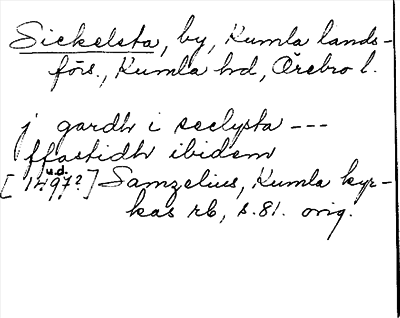 Sickelsta, by, Kumla lands-
förs., Kumla hd, Örebro l.
j gardh i seelysta ---
ffastidh ibidem
u.d.
[1497?] Samzelius, Kumla kyr-
kas rb, s. 81. orig.